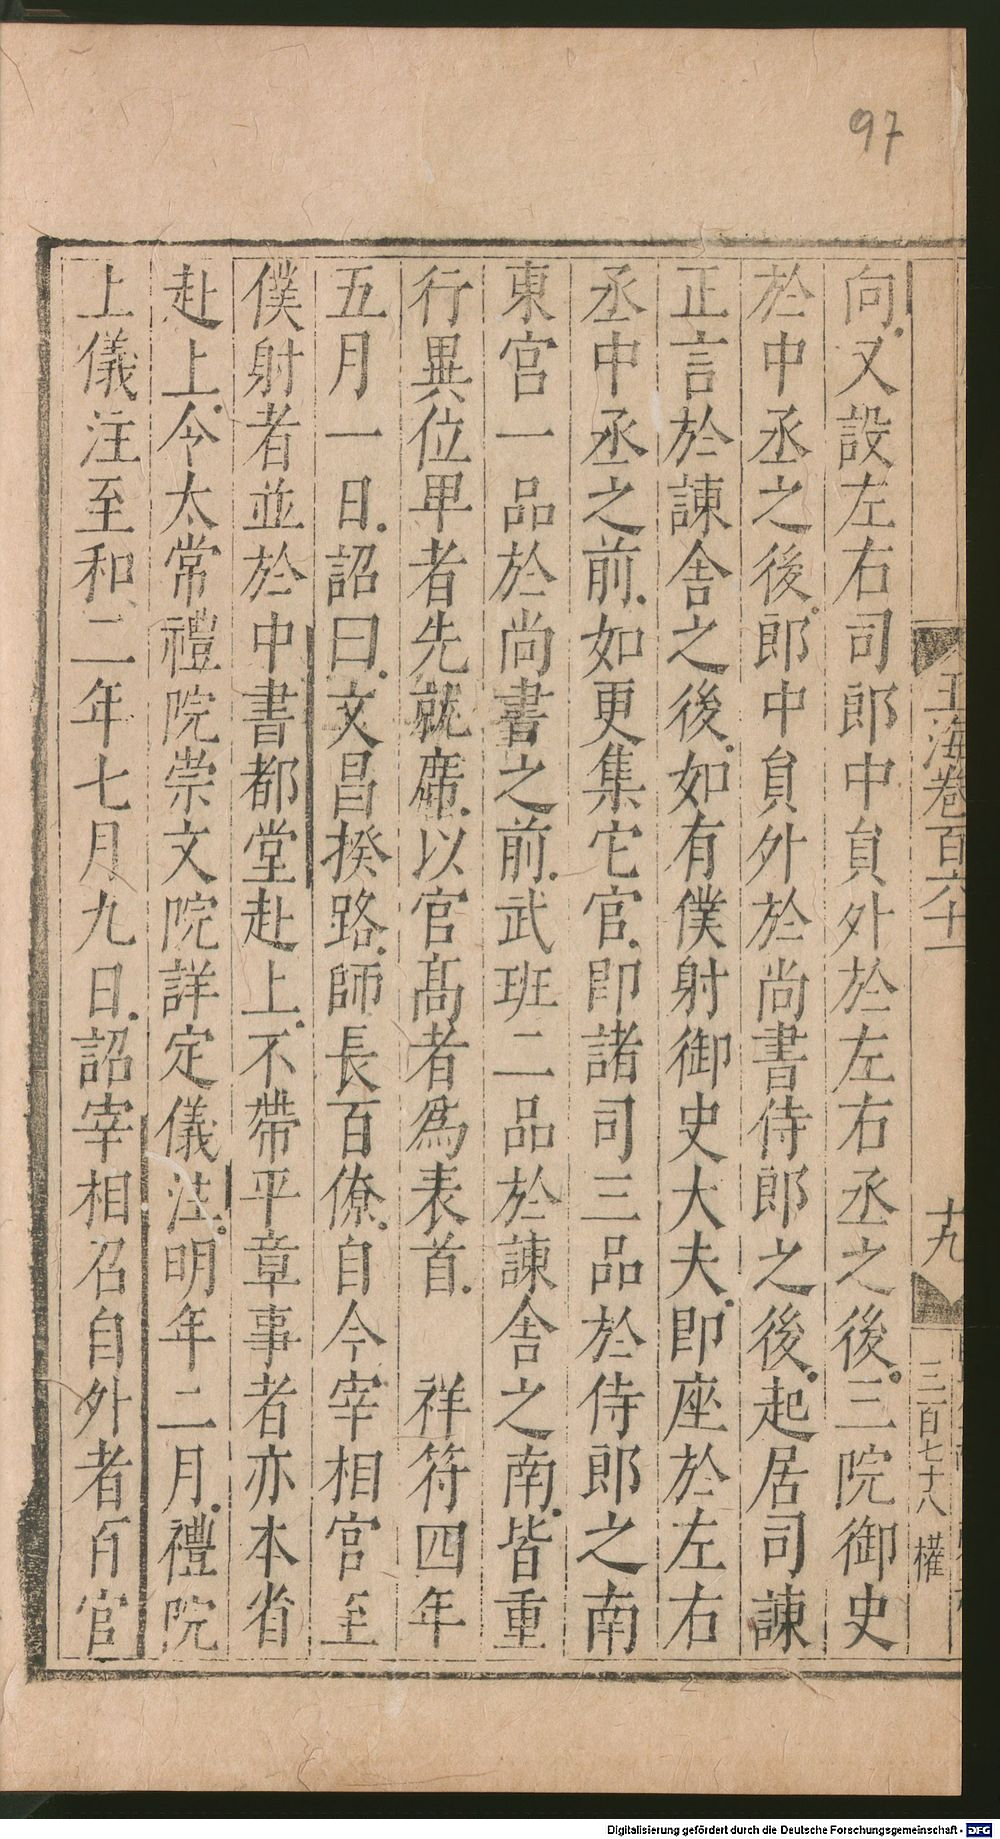 97
玉海卷百六十一
十九
三百七十八 權
向又設左右司郎中貟外於左右丞之後三院御史
於中丞之後郎中貟外於尚書侍郎之後起居司諫
正言於諫舍之後如有僕射御史大夫即座於左右
丞中丞之前如更集它官即諸司三品於侍郎之南
東宫一品於尚書之前武班二品於諫舍之南皆重
行異位卑者先就席以官髙者爲表首 祥符四年
五月一日詔曰文昌揆路師長百僚自今宰相官至
僕射者並於中書都堂赴上不帶平章事者亦本省
赴上令太常禮院崇文院詳定儀注明年二月禮院
上儀注至和二年七月九日詔宰相召自外者百官
Digitalisierung gefördert durch die Deutsche Forschungsgemeinschaft - DFG